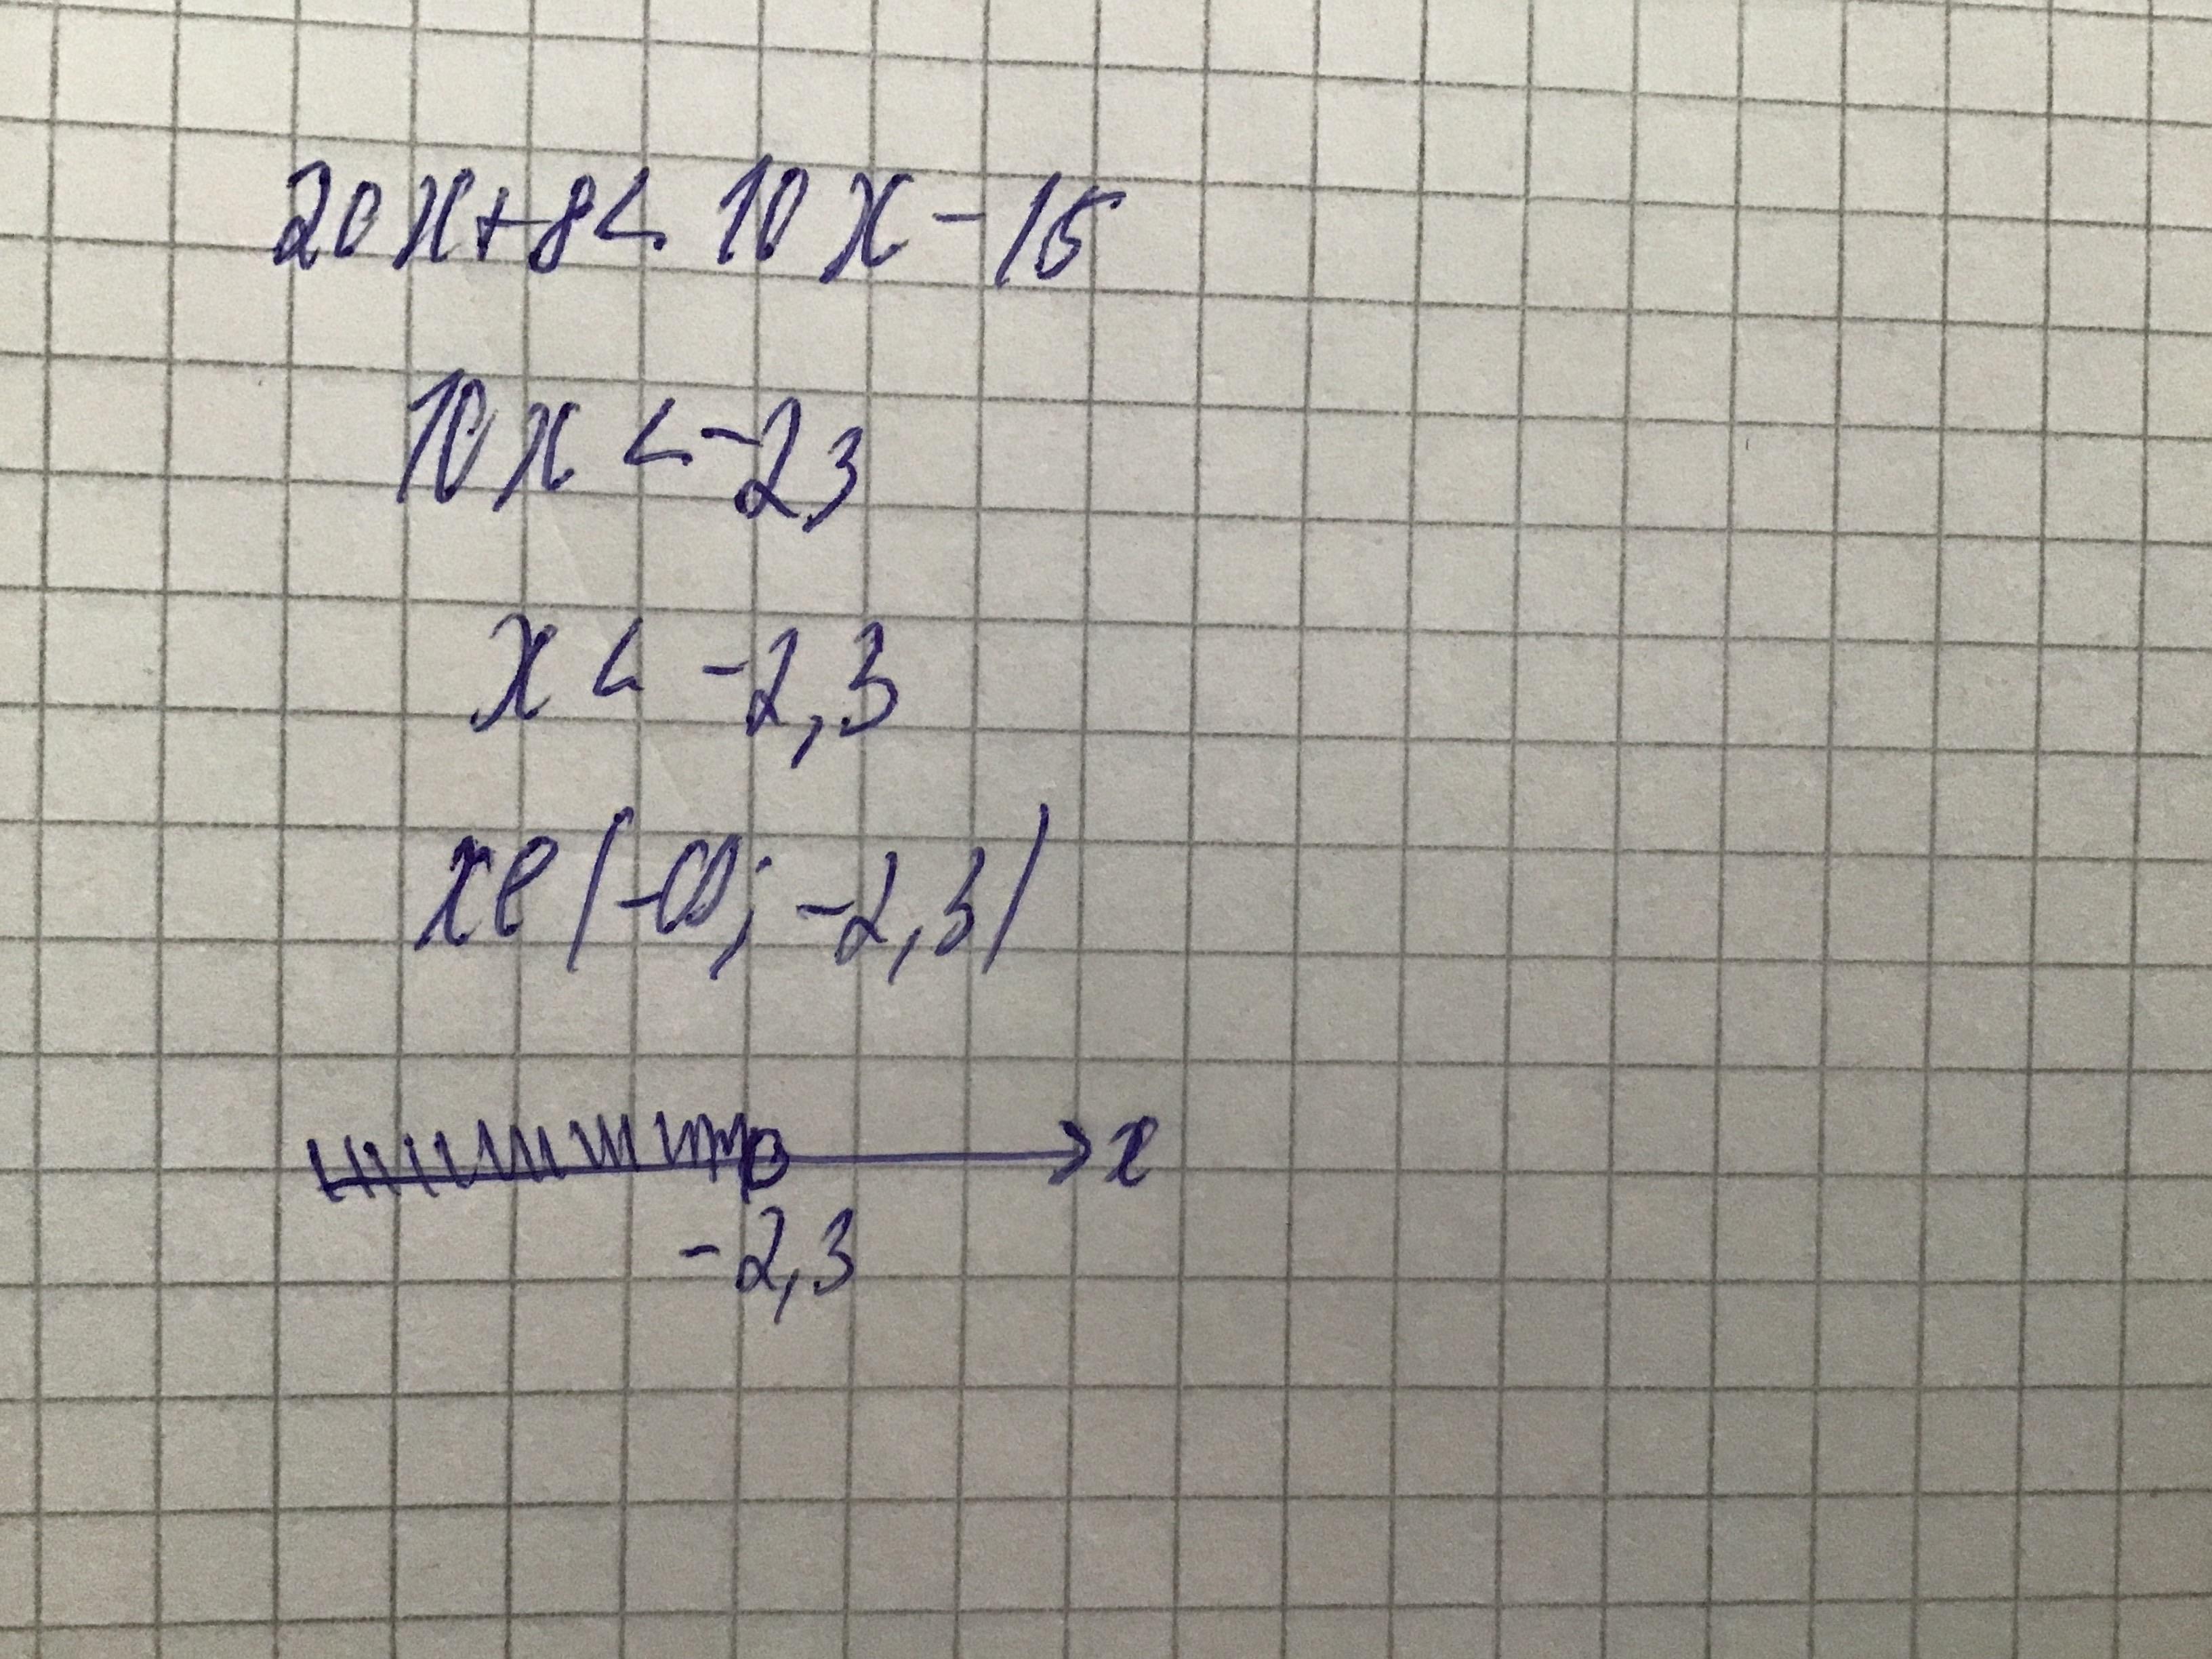 20x+8< 10x-15
10x <-23
x < -2,3
x∈(-∞; -2,3)
x
-2,3